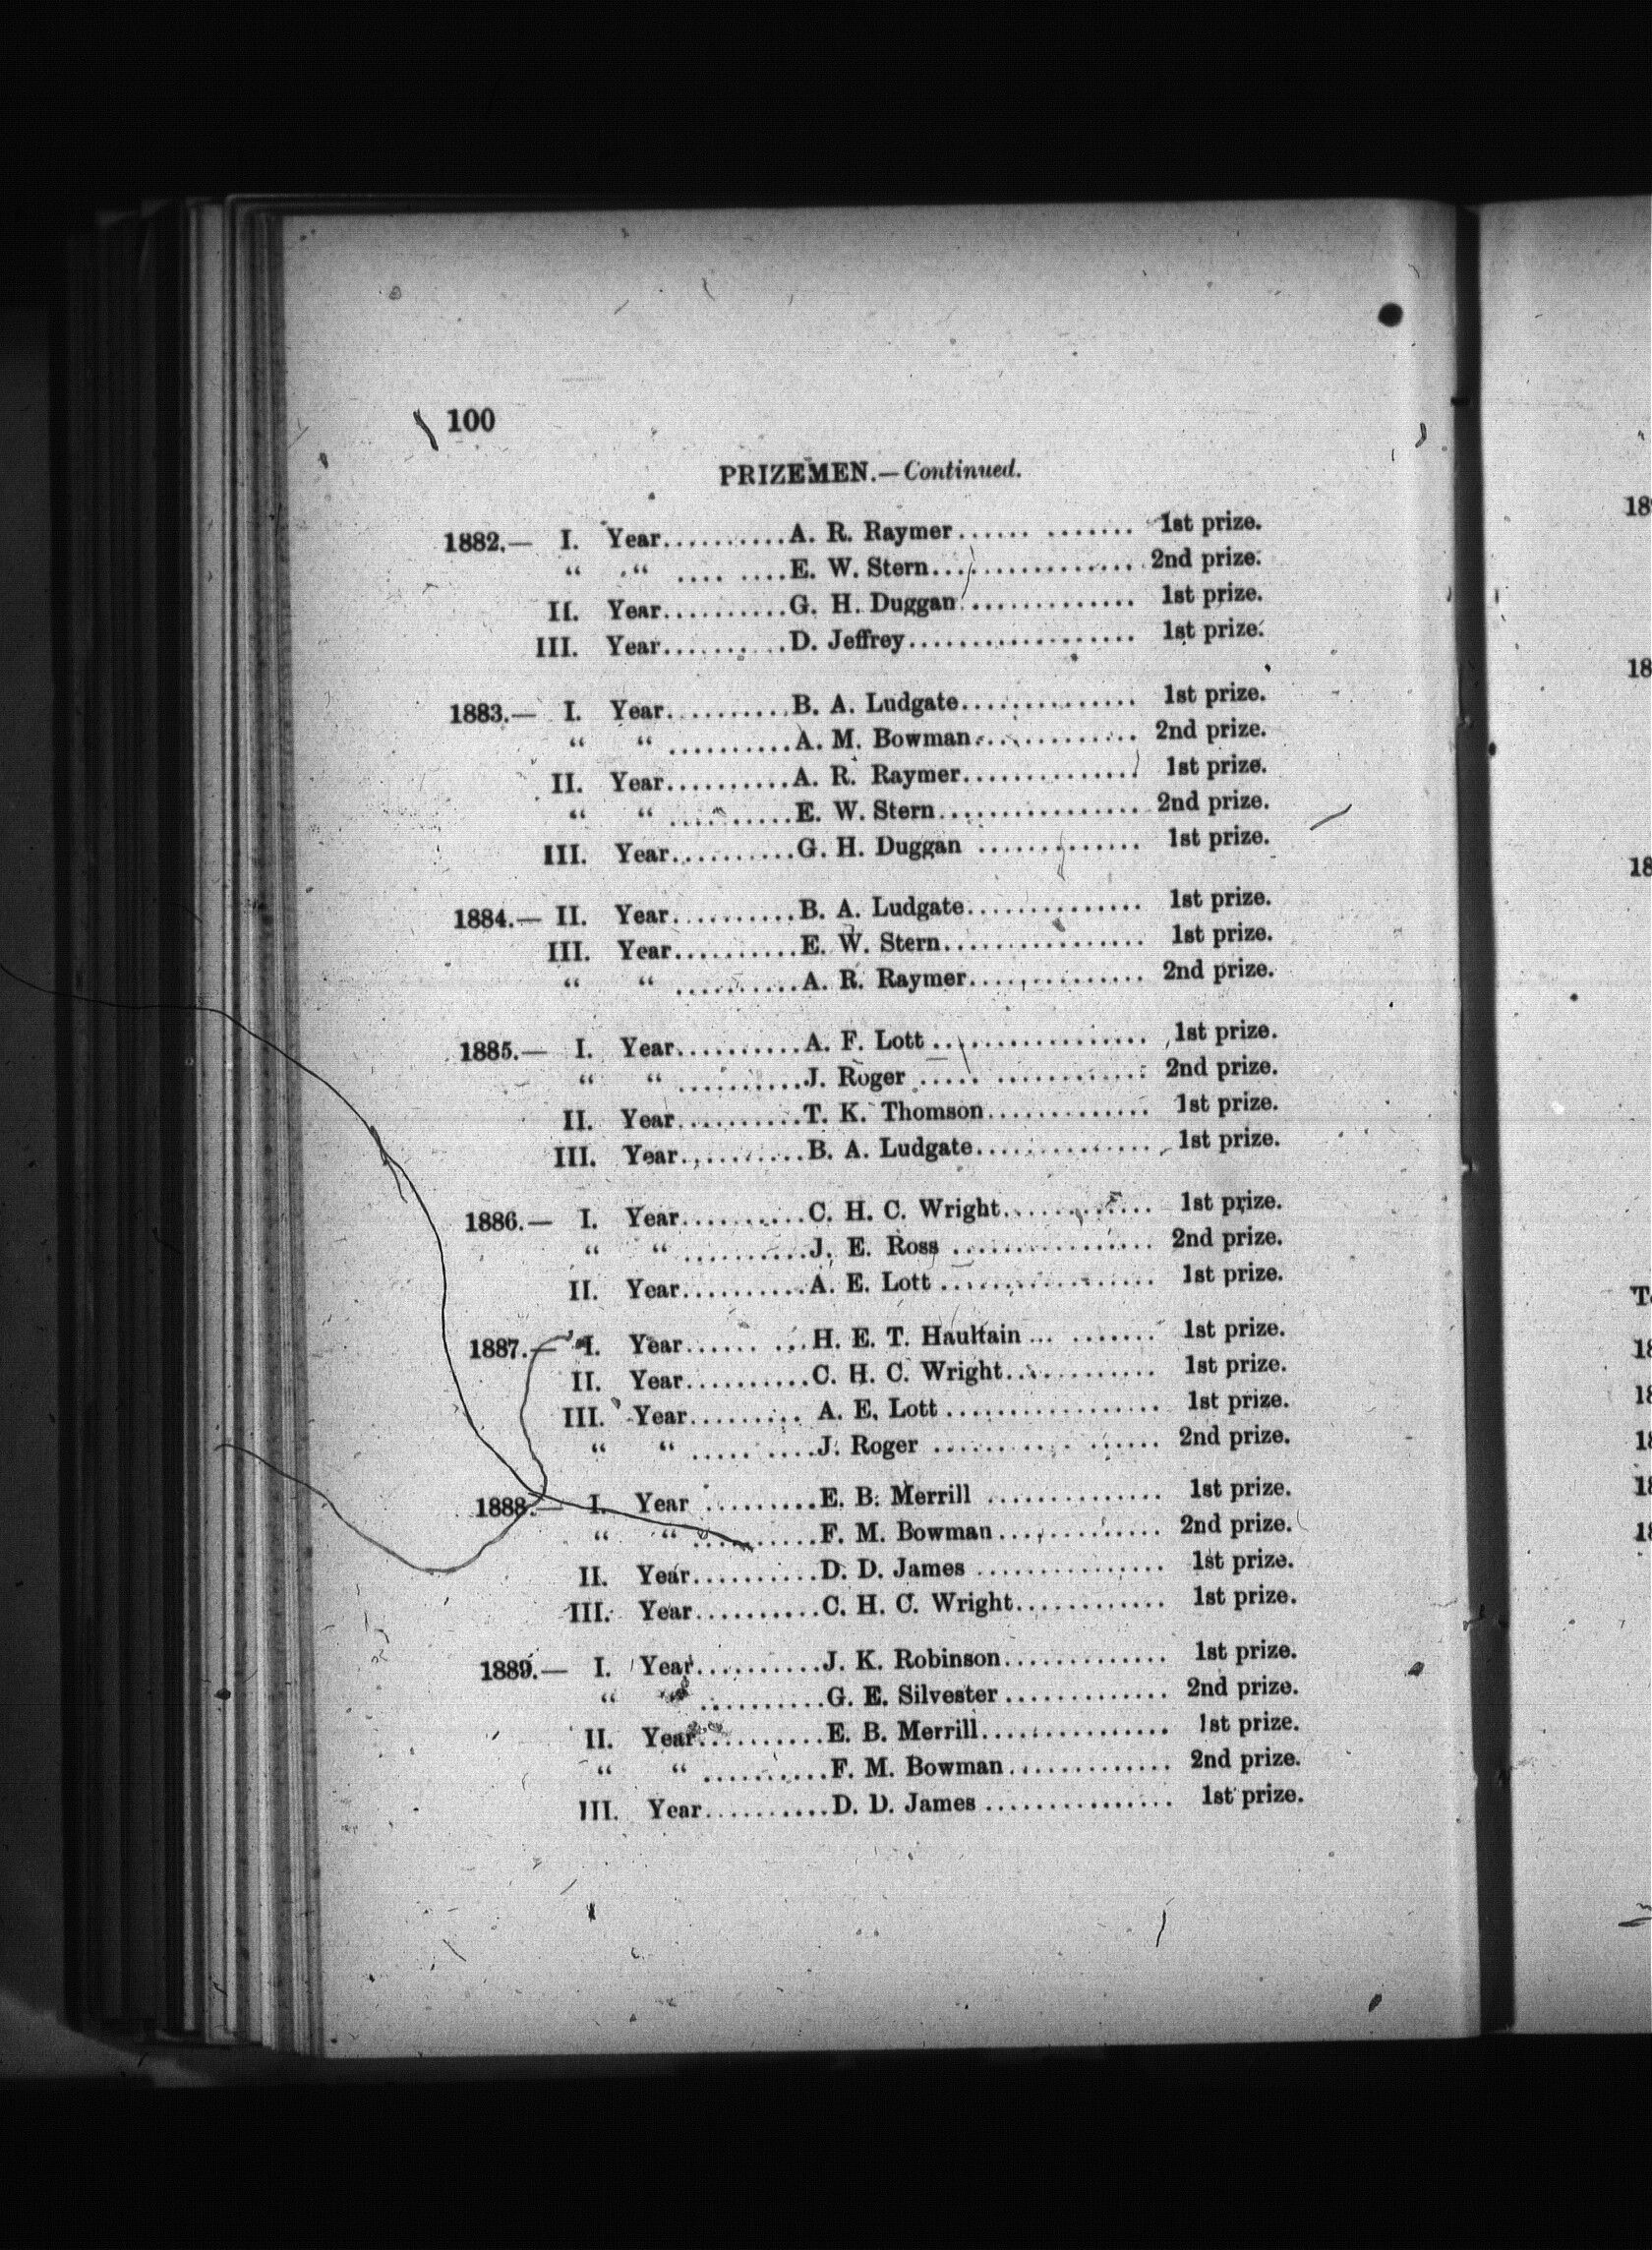 100
PRIZEMEN.—Continued.
1882.— I. Year..........A. R. Raymer...... ....... 1st prize.
“ “ .... ....E. W. Stern.................. 2nd prize.
II. Year..........G. H. Duggan .............. 1st prize.
III. Year..........D. Jeffrey................... 1st prize.
1883.— I. Year..........B. A. Ludgate.............. 1st prize.
“ “ ..........A. M. Bowman............. 2nd prize.
II. Year..........A. R. Raymer.............. 1st prize.
“ “ ..........E. W. Stern................ 2nd prize.
III. Year..........G. H. Duggan ............. 1st prize.
1884.— II. Year..........B. A. Ludgate.............. 1st prize.
III. Year..........E. W. Stern................ 1st prize.
“ “ ..........A. R. Raymer.............. 2nd prize.
1885.— I. Year..........A. F. Lott ................. 1st prize.
“ “ ..........J. Roger ..... ............ 2nd prize.
II. Year..........T. K. Thomson............. 1st prize.
III. Year..........B. A. Ludgate.............. 1st prize.
1886.— I. Year..........C. H. C. Wright............ 1st prize.
“ “ ..........J. E. Ross ................ 2nd prize.
II. Year..........A. E. Lott ................. 1st prize.
1887.— I. Year...... ...H. E. T. Haultain ... ....... 1st prize.
II. Year..........C. H. C. Wright............ 1st prize.
III. Year......... A. E. Lott ................. 1st prize.
“ “ ..... ....J. Roger ........... ...... 2nd prize.
1888.— I. Year .........E. B. Merrill .............. 1st prize.
“ “ ..........F. M. Bowman............. 2nd prize.
II. Year..........D. D. James ............... 1st prize.
III. Year..........C. H. C. Wright............ 1st prize.
1889.— I. Year..........J. K. Robinson............. 1st prize.
“ ..........G. E. Silvester ............. 2nd prize.
II. Year..........E. B. Merrill............... 1st prize.
“ “ ..........F. M. Bowman ............. 2nd prize.
III. Year..........D. D. James ............... 1st prize.